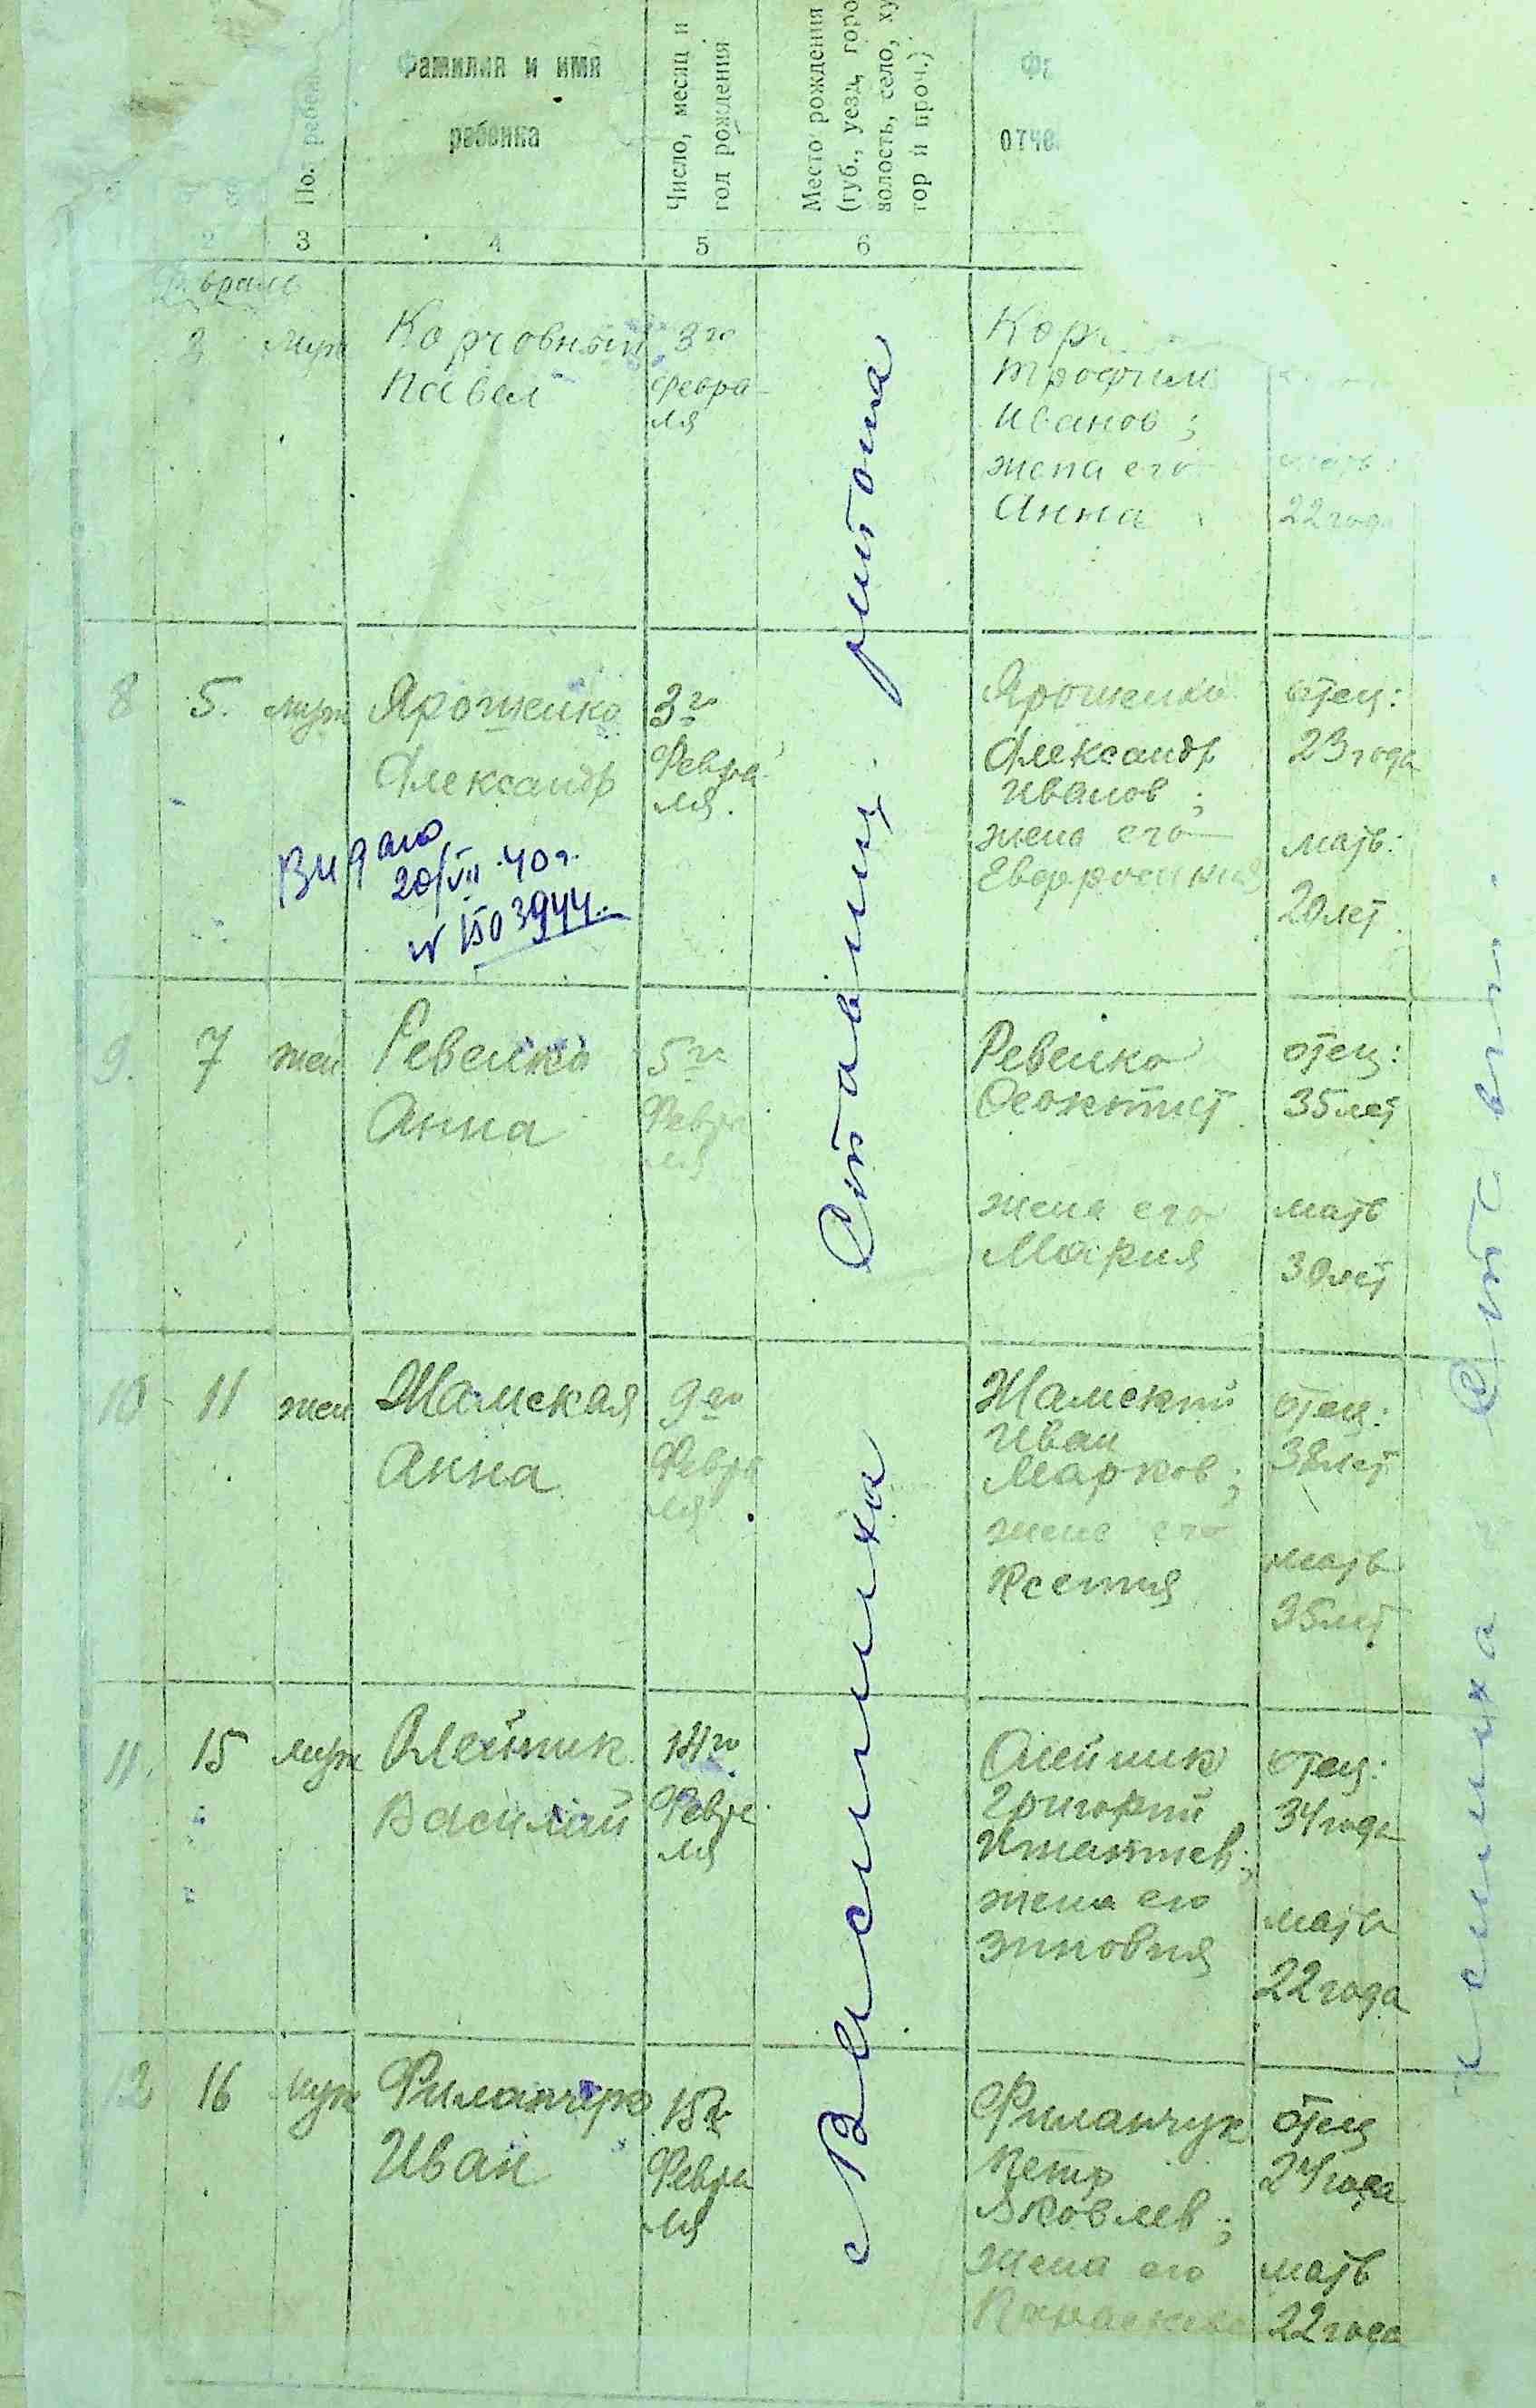 Фамилия и имя
ребенка
Число, месяц и
год рождения
Место рождения
(губ., уезд, горо
волость, село, ху
тор и проч.)
отче
2 3 4 5 6
3 муж Корчовный 3го
Павел февра-
ля
Трофим
Иванов;
жена его
Анна
22 года
8 5. муж Ярошенко 3го
Александр Февра
ля.
Ярошенко отец:
Александр 23 года
Иванов;
жена его мать:
Евфросиния 20 лет
Видано
20/VII 40 г.
№ 1503944.
9. 7 жен Ревенко 5го
Анна Февра
ля
Ревенко отец:
Феоктист 35 лет
жена его мать
Мария 30 лет
10 11 жен Жамская 9го
Анна Февра
ля
Жамский отец:
Иван 38 лет
Марков;
жена его мать
Ксения 35 лет
11. 15 муж Олейник 14го
Василий Февра
ля
Олейник отец:
Григорий 34 года
Игнатиев;
жена его мать
Зиновия 22 года
12 16 муж 15го
Иван Февра
ля
Филанчук отец
Петр 24 года
Яковлев;
жена его мать
Параскева 22 года